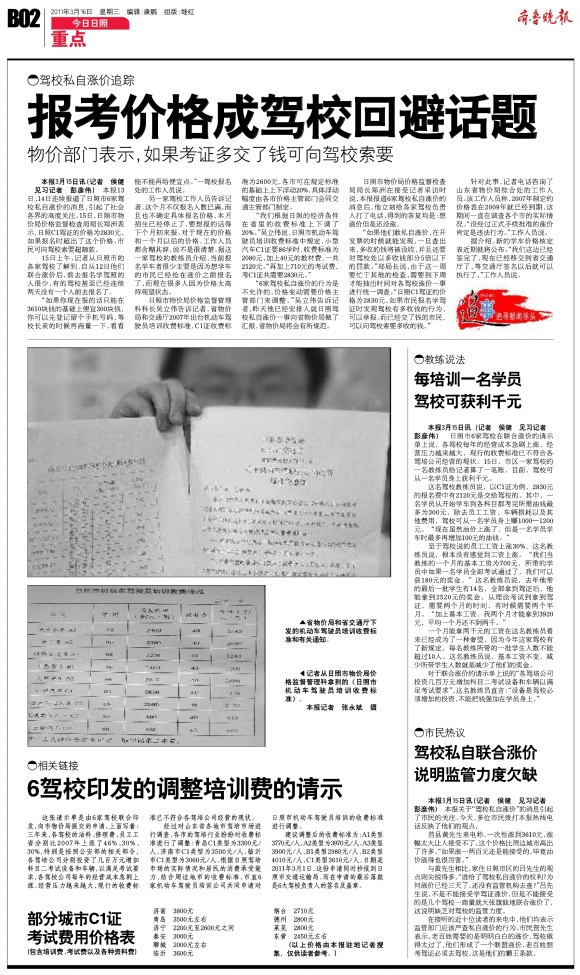 B02
2011年3月16日 星期三 编辑:康鹏 组版:继红
今日日照
重点
齐鲁晚报
驾校私自涨价追踪
报考价格成驾校回避话题
物价部门表示,如果考证多交了钱可向驾校索要
本报3月15日讯(记者 侯健
见习记者 彭彦伟) 本报13
日、14日连续报道了日照市6家驾
校私自涨价的消息,引起了社会
各界的高度关注。15日,日照市物
价局价格监督检查局局长郑洲表
示,日照C1驾证的价格为2830元,
如果报名时超出了这个价格,市
民可向驾校索要超额款。
15日上午,记者从日照市的
各家驾校了解到,自从12日他们
联合涨价后,前去报名学驾照的
人很少,有的驾校甚至已经连续
两天没有一个人前去报名了。
“如果你现在报的话只能在
3610块钱的基础上便宜300块钱,
你可以先登记留个手机号码,等
校长来的时候再商量一下,看看
能不能再给便宜点。”一驾校报名
处的工作人员说。
另一家驾校工作人员告诉记
者,这个月不仅报名人数已满,而
且也不确定具体报名价格,本月
招生已经停止了,要想报的话得
下个月初来报,对于现在的价格
和一个月以后的价格,工作人员
都含糊其辞,说不是很清楚。据这
一家驾校的教练员介绍,当前报
名学车者很少主要是因为想学车
的市民已经抢在涨价之前报名
了,而现在很多人因为价格太高
持观望状态。
日照市物价局价格监督管理
科科长吴立伟告诉记者,省物价
局和交通厅2007年出台机动车驾
驶员培训收费标准,C1证收费标
准为2600元,各市可在规定标准
的基础上上下浮动20%,具体浮动
幅度由各市价格主管部门会同交
通主管部门制定。
“我们根据日照的经济条件
在省里的收费标准上下调了
20%。”吴立伟说,日照市机动车驾
驶员培训收费标准中规定,小型
汽车C1证要86学时,收费标准为
2080元,加上40元的教材费,一共
2120元。“再加上710元的考试费,
考C1证共需要2830元。”
“6家驾校私自涨价的行为是
不允许的,价格变动需要价格主
管部门来调整。”吴立伟告诉记
者,昨天他已经安排人就日照驾
校私自涨价一事向省物价局做了
汇报,省物价局将会有所规范。
日照市物价局价格监督检查
局局长郑洲在接受记者采访时
说,本报报道6家驾校私自涨价的
消息后,他立刻给各家驾校负责
人打了电话,得到的答复均是:想
涨价但是还没涨。
“如果他们敢私自涨价,在开
发票的时候就能发现,一旦查出
来,多收的钱将被没收,并且还要
对驾校处以多收钱部分5倍以下
的罚款。”郑局长说,由于这一周
要忙于其他的检查,需要到下周
才能抽出时间对各驾校涨价一事
进行统一调查。“日照C1驾证的价
格为2830元,如果市民报名学驾
证时发现驾校有多收钱的行为,
可以举报,而已经交了钱的市民,
可以向驾校索要多收的钱。”
针对此事,记者电话咨询了
山东省物价局综合处的工作人
员,该工作人员称,2007年制定的
价格表在2009年就已经到期,这
期间一直在调查各个市的实际情
况。“没经过正式手续批准的涨价
肯定是违法行为。”工作人员说。
据介绍,新的学车价格核定
表近期就将公布。“我们这边已经
签完了,现在已经移交到省交通
厅了,等交通厅签名以后就可以
执行了。”工作人员说。
追
追寻新闻尽头
教练说法
每培训一名学员
驾校可获利千元
本报3月15日讯(记者 侯健 见习记者
彭彦伟) 日照市6家驾校在联合涨价的请示
单上说,各驾校每年的经营成本急剧上涨,经
营压力越来越大,现行的收费标准已不符合各
驾培公司经营的现状。15日,市区一家驾校的
一名教练员给记者算了一笔账,目前,驾校可
从一名学员身上获利千元。
这名驾校教练员说,以C1证为例,2830元
的报名费中有2120元是交给驾校的,其中,一
名学员从开始学车到各科目都考完所需油钱最
多为300元,除去员工工资、车辆损耗以及其
他费用,驾校可从一名学员身上赚1000—1200
元。“现在虽然油价上涨了,但是一名学员学
车时最多再增加100元的油钱。”
至于驾校说的员工工资上涨30%,这名教
练员说,根本没有感觉到工资上涨。“我们当
教练的一个月的基本工资为700元,所带的学
员中如果一名学员全部考试通过了,我们可以
获180元的奖金。”这名教练员说,去年他带
的最后一批学生有14名,全部拿到驾证后,他
能拿到2520元的奖金。从理论考试到拿到驾
证,需要两个月的时间,有时候需要两个半
月,“加上基本工资,我两个月才能拿到3920
元,平均一个月还不到两千。”
一个月能拿两千元的工资在这名教练员看
来已经成为了一种奢望,因为今年这家驾校有
了新规定,每名教练所带的一批学生人数不能
超过10人。这名教练员说,基本工资不变,减
少所带学生人数就是减少了他们的奖金。
对于联合涨价的请示单上说的“各驾培公司
投资几百万元增加科目二考试设备和车辆以满
足考试要求”,这名教练员直言:“设备是驾校必
须增加的投资,不能把钱强加在学员身上。”
▲省物价局和省交通厅下
发的机动车驾驶员培训收费标
准和有关通知。
◀记者从日照市物价局价
格监督管理科拿到的《日照市
机动车驾驶员培训收费标
准》。
本报记者 张永斌 摄
日照市机动车驾驶员培训收费标准
相关链接
6驾校印发的调整培训费的请示
这张请示单是由6家驾校联合印
发,向市物价局提交的申请。上面写着:
三年来,各驾校的油料、修理费、员工工
资分别比2007年上涨了46%、30%、
30%,特别是按照公安部的相关部令,
各驾培公司分别投资了几百万元增加
科目二考试设备和车辆,以满足考试要
求,各驾校公司每年的经营成本急剧上
涨,经营压力越来越大,现行的收费标
准已不符合各驾培公司经营的现状。
经过对山东省各地市驾培市场进
行调查,各市的驾培行业纷纷对收费标
准进行了调整:青岛C1类型为3300元/
人,济南市C1类型为3500元/人,临沂
市C1类型为3060元/人。根据日照驾培
市场的实际情况和居民的消费承受能
力,结合周边地市的收费标准,市直6
家机动车驾驶员培训公司共同申请对
日照市机动车驾驶员培训的收费标准
进行调整。
建议调整后的收费标准为:A1类型
3770元/人、A2类型为3970元/人、A3类型
3900元/人、B1类型2980元/人、B2类型
4010元/人、C1类型3610元/人。日期是
2011年3月1日,这份申请同时抄报到日
照市交通运输局,而在申请的最后落款
是6大驾校负责人的签名及盖章。
部分城市C1证
考试费用价格表
(包含培训费、考试费以及各种资料费)
济南 3800元
青岛 3500元左右
济宁 2200元至2600元之间
泰安 3000元
聊城 2000元左右
临沂 3600元
烟台 2710元
德州 2800元
莱芜 2800元
东营 2450元左右
(以上价格由本报驻地记者搜
集,仅供读者参考。)
市民热议
驾校私自联合涨价
说明监管力度欠缺
本报3月15日讯(记者 侯健 见习记者
彭彦伟) 本报关于“驾校私自涨价”的消息引起
了市民的关注。今天,多位市民拨打本报热线电
话反映了他们的观点。
莒县黄先生来电称,一次性涨到3610元,涨
幅太大让人接受不了,这个价格比周边城市高出
了许多,“如果涨一两百元还是能接受的,毕竟油
价涨得也挺厉害。”
与黄先生相比,家住日照市区的吕先生的观
点则尖锐得多。“谁给了驾校私自涨价的权利?为
何涨价已经三天了,还没有监管机构去查?”吕先
生说,不是不能接受学驾证涨价,但是不能接受
的是几个驾校一商量就大张旗鼓地联合涨价了,
这说明缺乏对驾校的监管力度。
在接听的近十位读者的来电中,他们均表示
监管部门应该严查私自涨价的行为。市民贺先生
表示,老百姓需要的是明明白白的涨价,驾校做
得太过了,他们形成了一个联盟涨价,老百姓想
考驾证必须去驾校,这是他们的霸王条款。